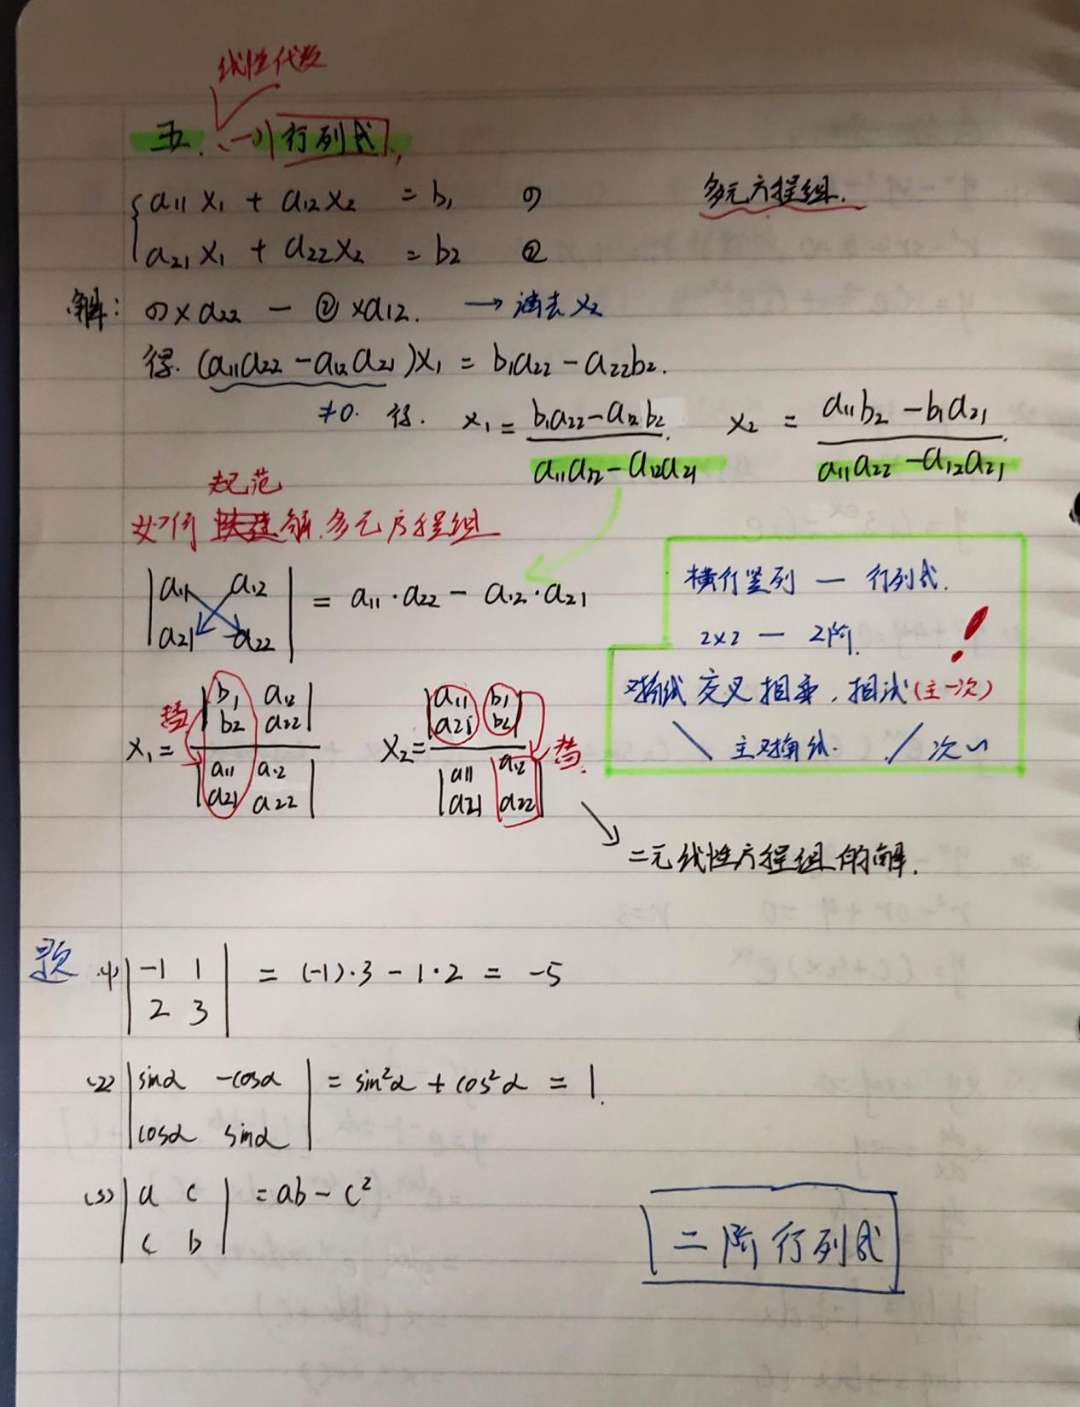 线性代数
五、(一)行列式,
a11 x1 + a12 x2 = b1 ①
多元方程组.
a21 x1 + a22 x2 = b2 ②
解: ①×a22 — ②×a12. → 消去 x2
得. (a11a22 - a12a21)x1 = b1a22 - a22b2.
≠0. 得. x1 = (b1a22 - a12b2)/(a11a22 - a12a21) x2 = (a11b2 - b1a21)/(a11a22 - a12a21).
规范
如何 解.多元方程组
|a11 a12|
|a21 a22| = a11·a22 - a12·a21
横行竖列 — 行列式.
2×2 — 2阶.
!
对角线 交叉相乘,相减(主-次)
\ 主对角线. / 次〃
替 x1 = |b1 a12; b2 a22| / |a11 a12; a21 a22|
x2 = |a11 b1; a21 b2| / |a11 a12; a21 a22| 替.
二元线性方程组的解.
题 (1) |-1 1|
|2 3| = (-1)·3 - 1·2 = -5
(2) |sinα -cosα|
|cosα sinα| = sin²α + cos²α = 1.
(3) |a c|
|c b| = ab - c²
二阶行列式